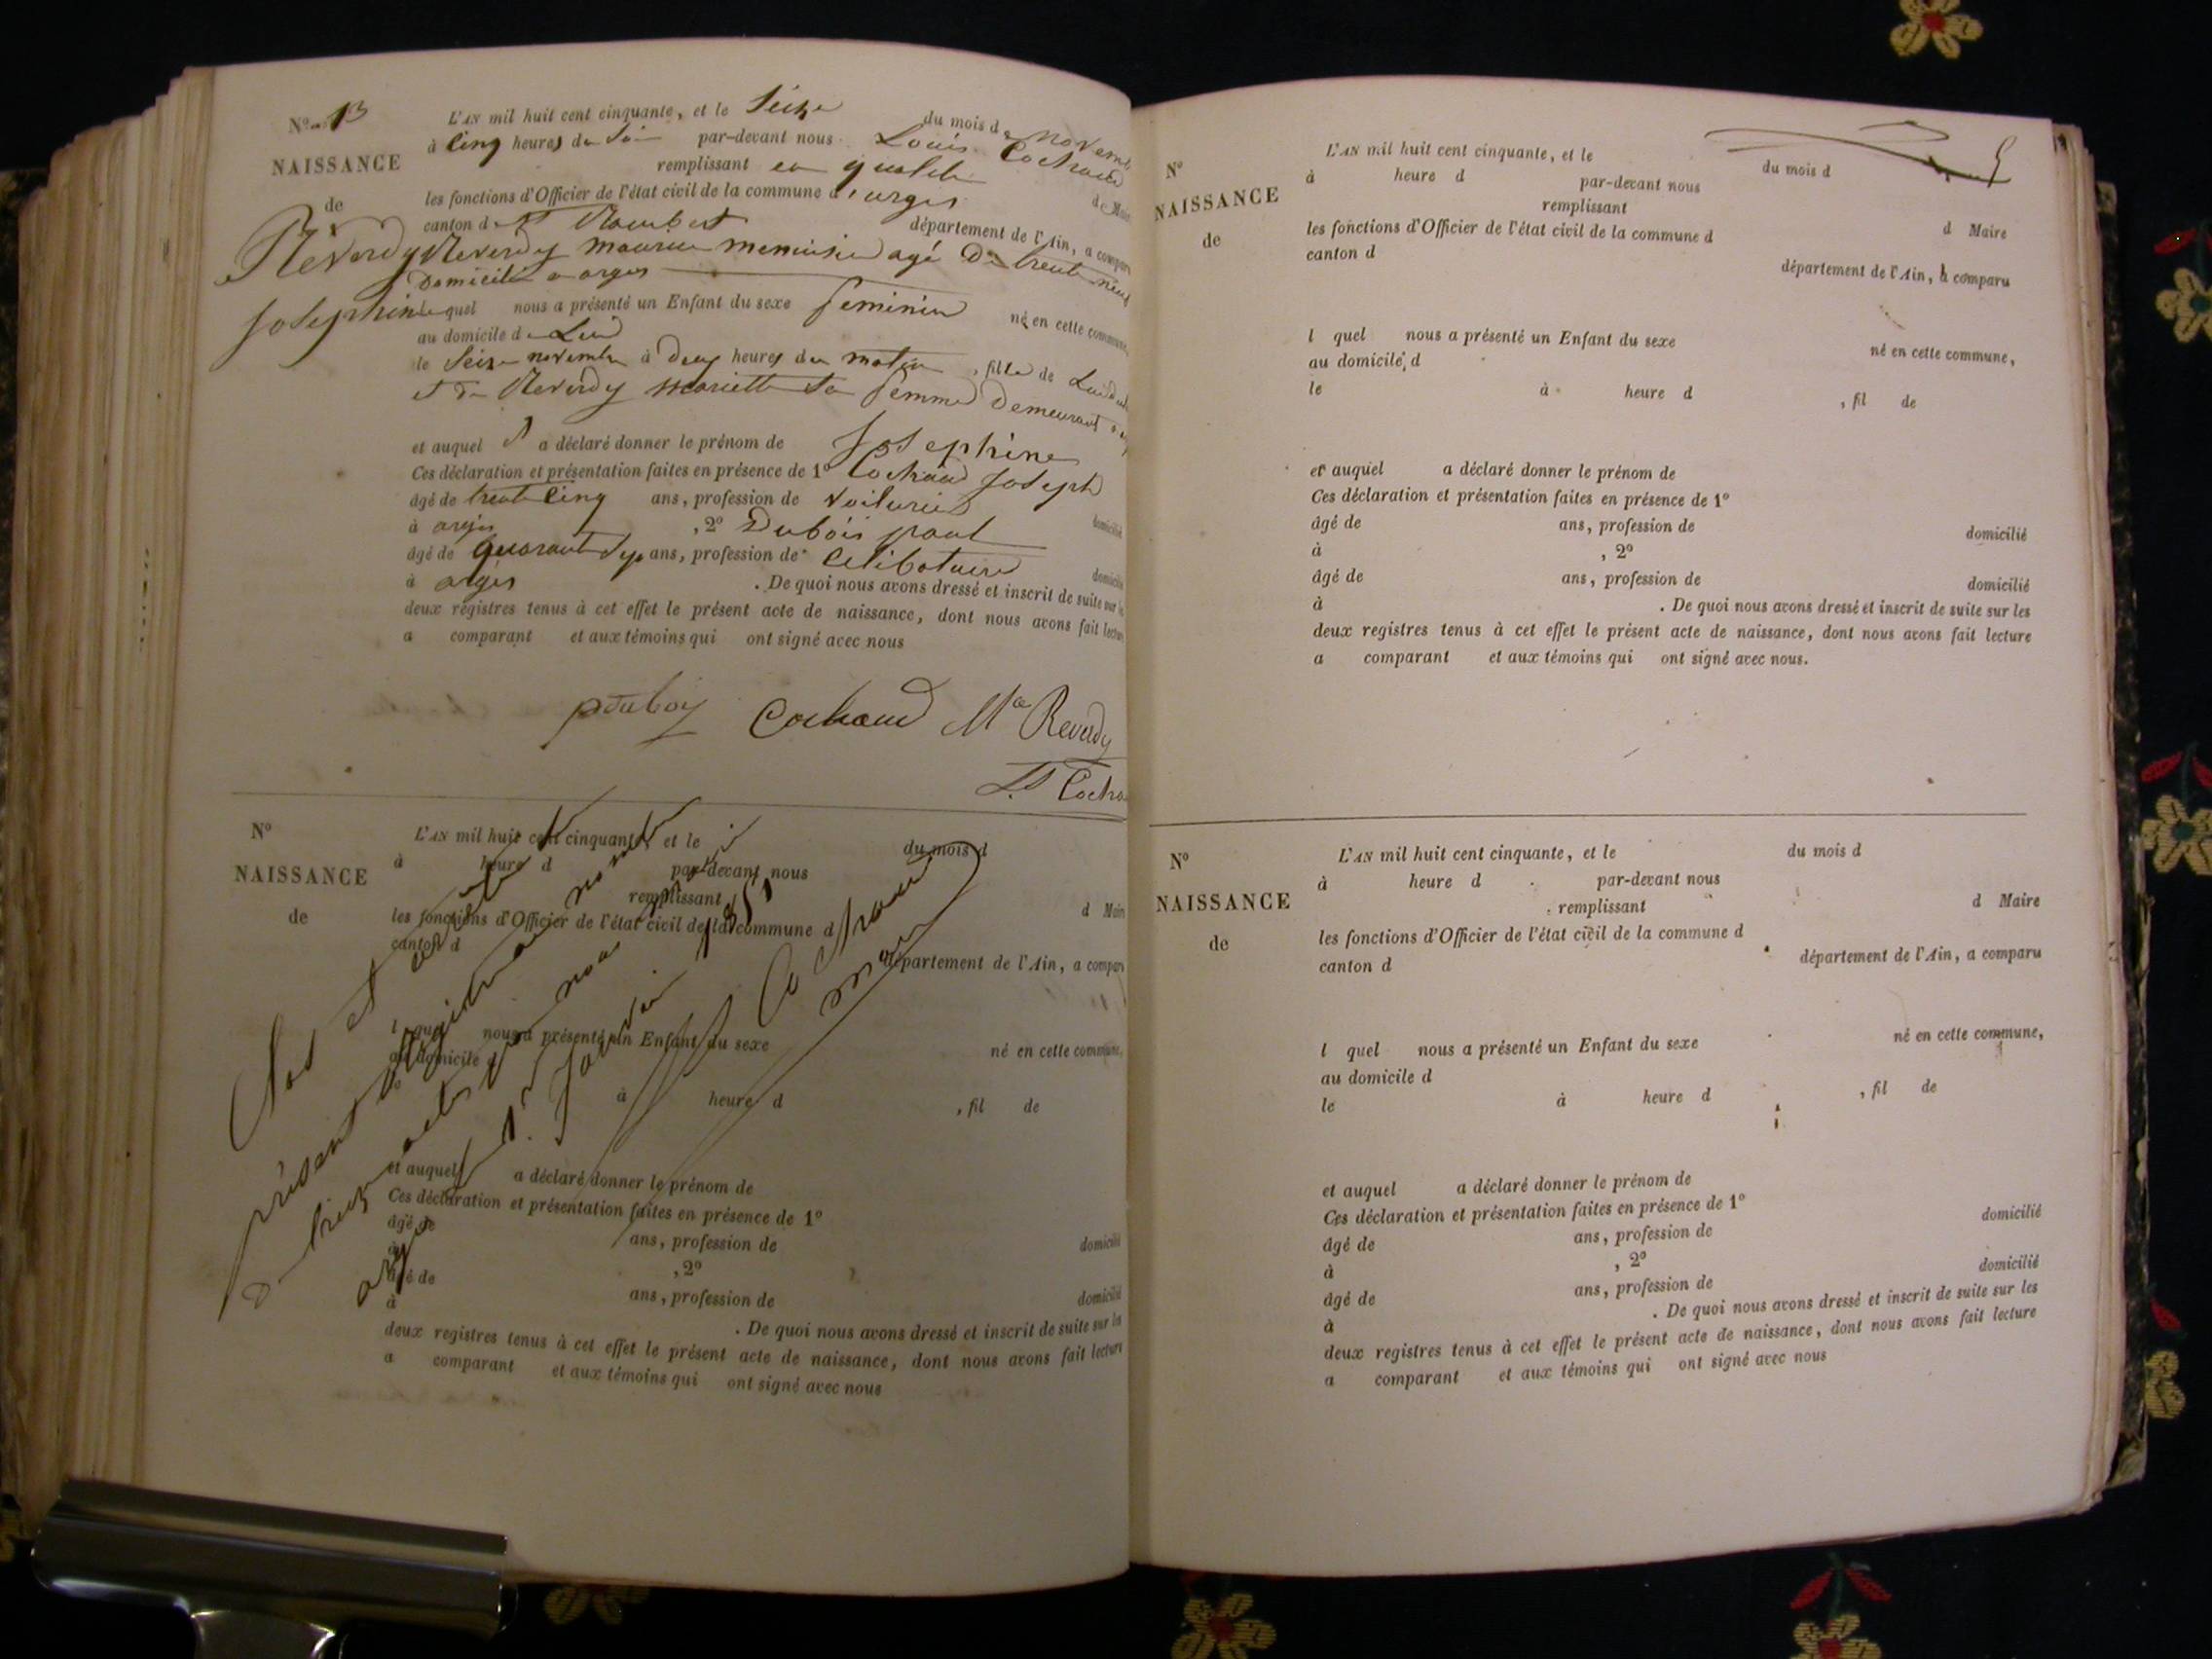 No 13
NAISSANCE
de
Reverdy
Josephine
L'AN mil huit cent cinquante, et le Seize du mois de Novemb
à Cinq heures du Soir par-devant nous Louis Cochaud
remplissant en qualité de Maire
les fonctions d'Officier de l'état civil de la commune d'arges
canton de St Rambert département de l'Ain, a comparu
Reverdy maurice menuisier agé De trente neuf
Domicilié a arges
lequel nous a présenté un Enfant du sexe feminin né en cette commune,
au domicile de Lui
le Seize novembre à Deux heures du matin, fille de Lui
et De Reverdy mariette Sa femme Demeurant
et auquel il a déclaré donner le prénom de Josephine
Ces déclaration et présentation faites en présence de 1o Cochaud Joseph
âgé de trente Cinq ans, profession de voiturier domicilié
à arges , 2o Dubois paul
âgé de quarante Sept ans, profession de Celibataire domicilié
à arges . De quoi nous avons dressé et inscrit de suite sur les
deux registres tenus à cet effet le présent acte de naissance, dont nous avons fait lecture
a comparant et aux témoins qui ont signé avec nous
pdubois Cochaud Mce Reverdy
Ls Cocha
No
NAISSANCE
de
L'AN mil huit cent cinquante, et le du mois d
à heure d par-devant nous
remplissant d Maire
les fonctions d'Officier de l'état civil de la commune d
canton d département de l'Ain, a comparu
l quel nous a présenté un Enfant du sexe né en cette commune,
au domicile d
le à heure d , fil de
et auquel a déclaré donner le prénom de
Ces déclaration et présentation faites en présence de 1o
âgé de ans, profession de domicilié
à , 2o
âgé de ans, profession de domicilié
à . De quoi nous avons dressé et inscrit de suite sur les
deux registres tenus à cet effet le présent acte de naissance, dont nous avons fait lecture
a comparant et aux témoins qui ont signé avec nous
Clos et
présent registre
de treize actes par nous
arges 1r Janvier 1851
Ls Cochaud
maire
No
NAISSANCE
de
L'AN mil huit cent cinquante, et le du mois d
à heure d par-devant nous
remplissant d Maire
les fonctions d'Officier de l'état civil de la commune d
canton d département de l'Ain, a comparu
l quel nous a présenté un Enfant du sexe né en cette commune,
au domicile d
le à heure d , fil de
et auquel a déclaré donner le prénom de
Ces déclaration et présentation faites en présence de 1o
âgé de ans, profession de domicilié
à , 2o
âgé de ans, profession de domicilié
à . De quoi nous avons dressé et inscrit de suite sur les
deux registres tenus à cet effet le présent acte de naissance, dont nous avons fait lecture
a comparant et aux témoins qui ont signé avec nous.
No
NAISSANCE
de
L'AN mil huit cent cinquante, et le du mois d
à heure d par-devant nous
remplissant d Maire
les fonctions d'Officier de l'état civil de la commune d
canton d département de l'Ain, a comparu
l quel nous a présenté un Enfant du sexe né en cette commune,
au domicile d
le à heure d , fil de
et auquel a déclaré donner le prénom de
Ces déclaration et présentation faites en présence de 1o
âgé de ans, profession de domicilié
à , 2o
âgé de ans, profession de domicilié
à . De quoi nous avons dressé et inscrit de suite sur les
deux registres tenus à cet effet le présent acte de naissance, dont nous avons fait lecture
a comparant et aux témoins qui ont signé avec nous